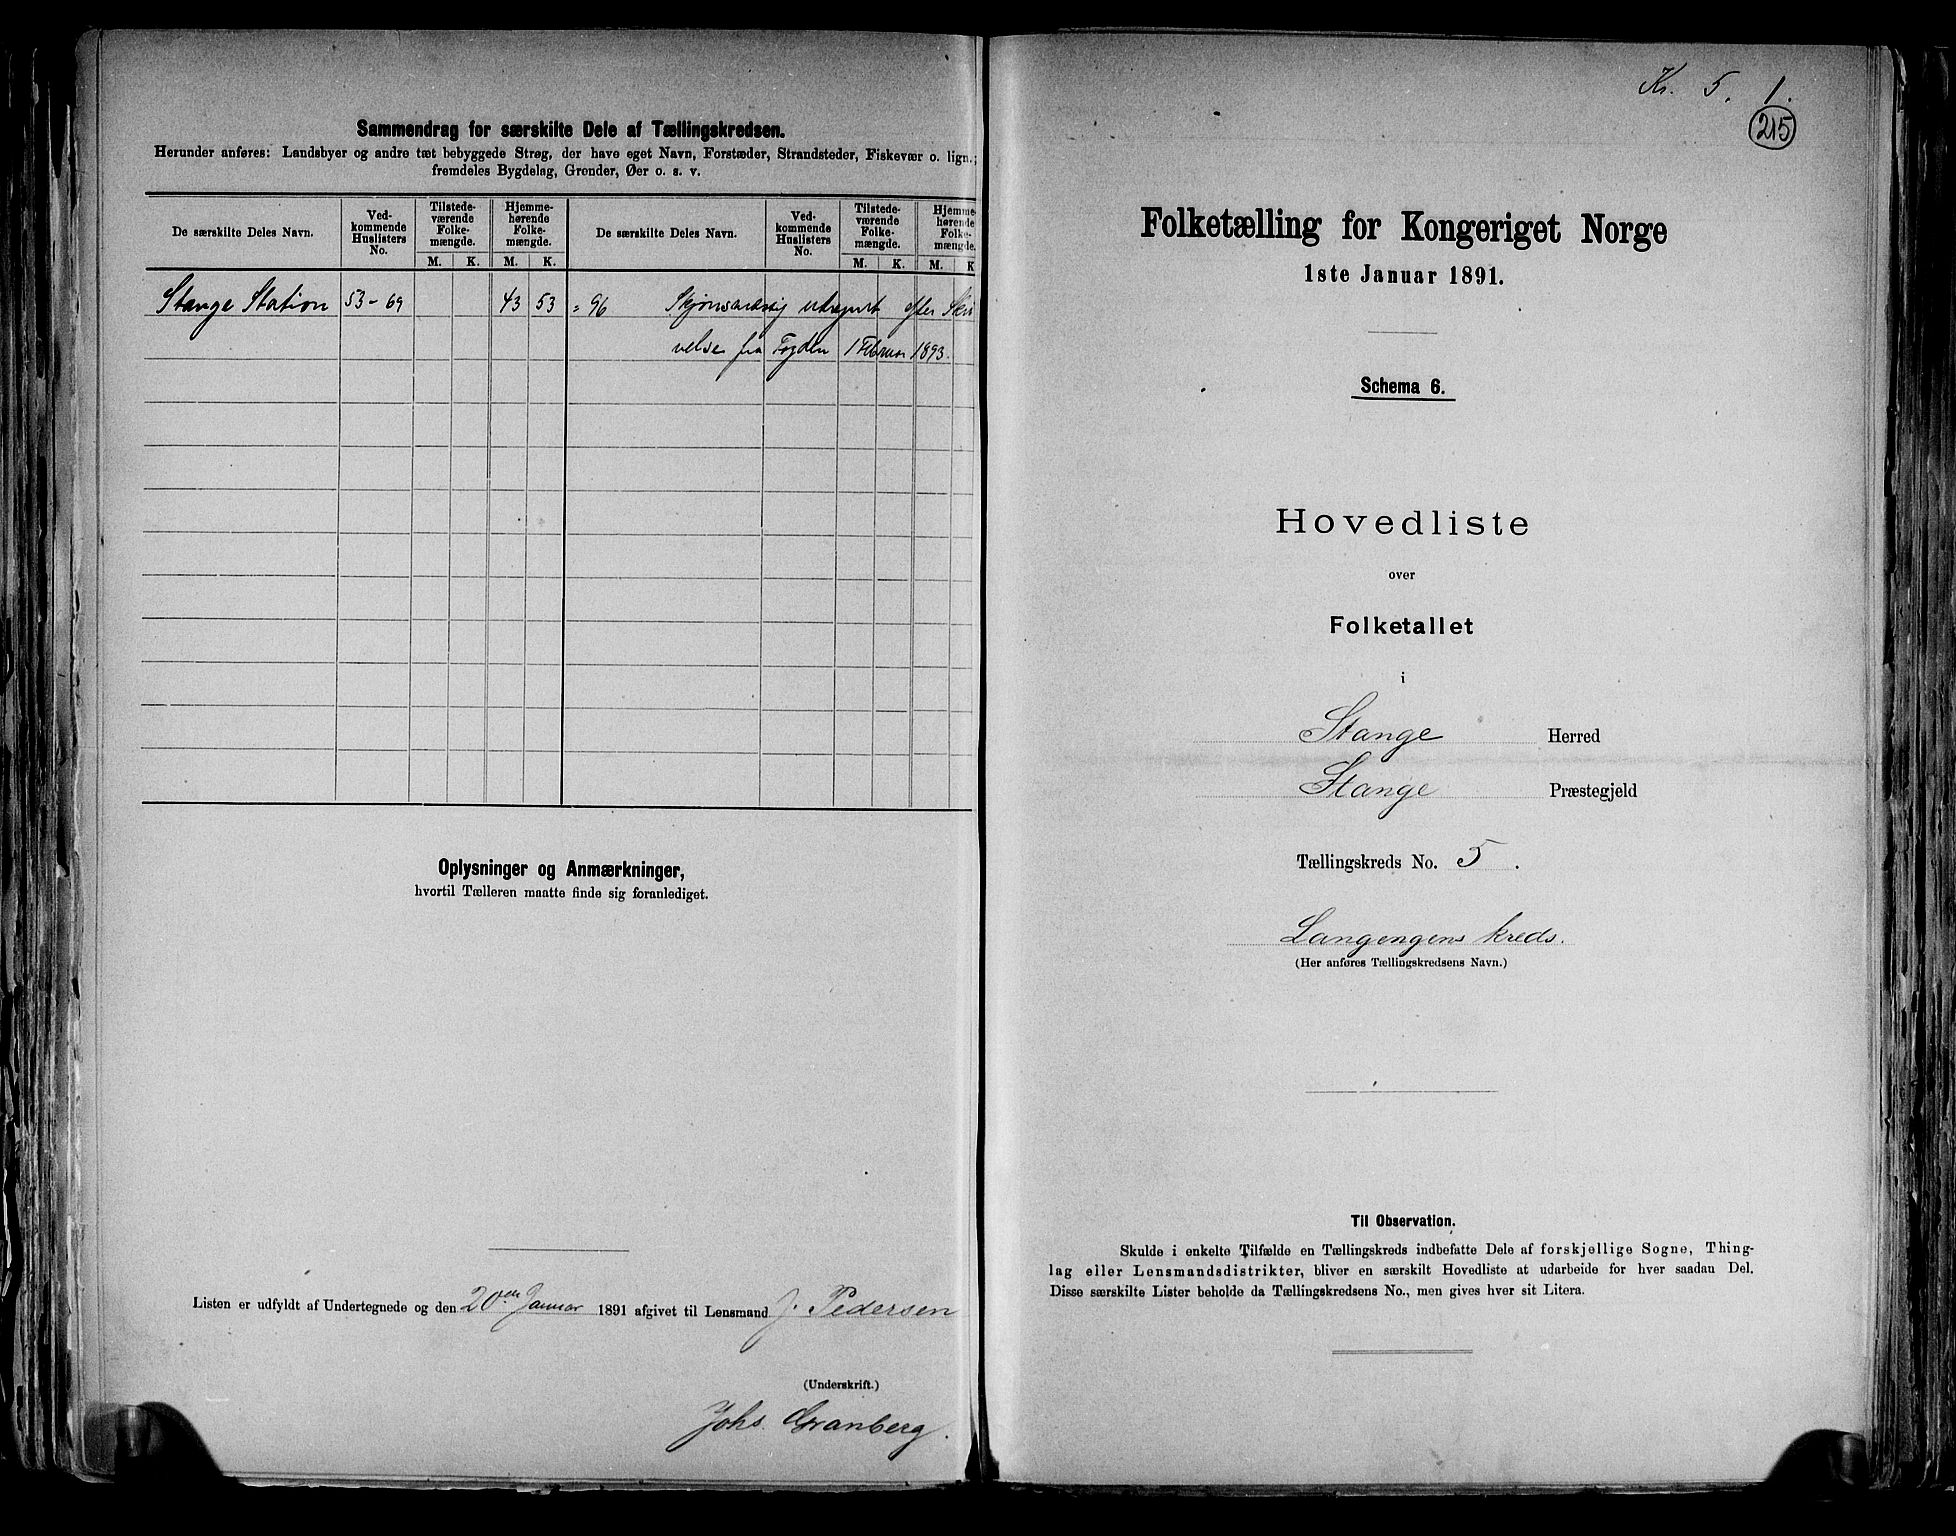 Sammendrag for særskilte Dele af Tællingskredsen.
Herunder anføres: Landsbyer og andre tæt bebyggede Strøg, der have eget Navn, Forstæder, Strandsteder, Fiskevær o. lign.;
fremdeles Bygdelag, Grender, Øer o. s. v.
De særskilte Deles Navn.
Ved-
kommende
Huslisters
No.
Tilstede-
værende
Folke-
mængde.
M. K.
Hjemme-
hørende
Folke-
mængde.
M. K.
De særskilte Deles Navn.
Ved-
kommende
Huslisters
No.
Tilstede-
værende
Folke-
mængde.
M. K.
Hjemme-
hørende
Folke-
mængde.
M. K
Stange Station 53-69 43 53 = 96 Skjønsmæssig udregnet efter Skri
velse fra Fogden 1 Februar 1893.
Oplysninger og Anmærkninger,
hvortil Tælleren maatte finde sig foranlediget.
Listen er udfyldt af Undertegnede og den 20en Januar 1891 afgivet til Lensmand J. Pedersen
(Underskrift.)
Johs. Granberg.
Kr. 5. 1.
215
Folketælling for Kongeriget Norge
1ste Januar 1891.
Schema 6.
Hovedliste
over
Folketallet
i
Stange Herred
Stange Præstegjeld
Tællingskreds No. 5.
Langengens kreds.
(Her anføres Tællingskredsens Navn.)
Til Observation.
Skulde i enkelte Tilfælde en Tællingskreds indbefatte Dele af forskjellige Sogne, Thing-
lag eller Lensmandsdistrikter, bliver en særskilt Hovedliste at udarbeide for hver saadan Del.
Disse særskilte Lister beholde da Tællingskredsens No., men gives hver sit Litera.